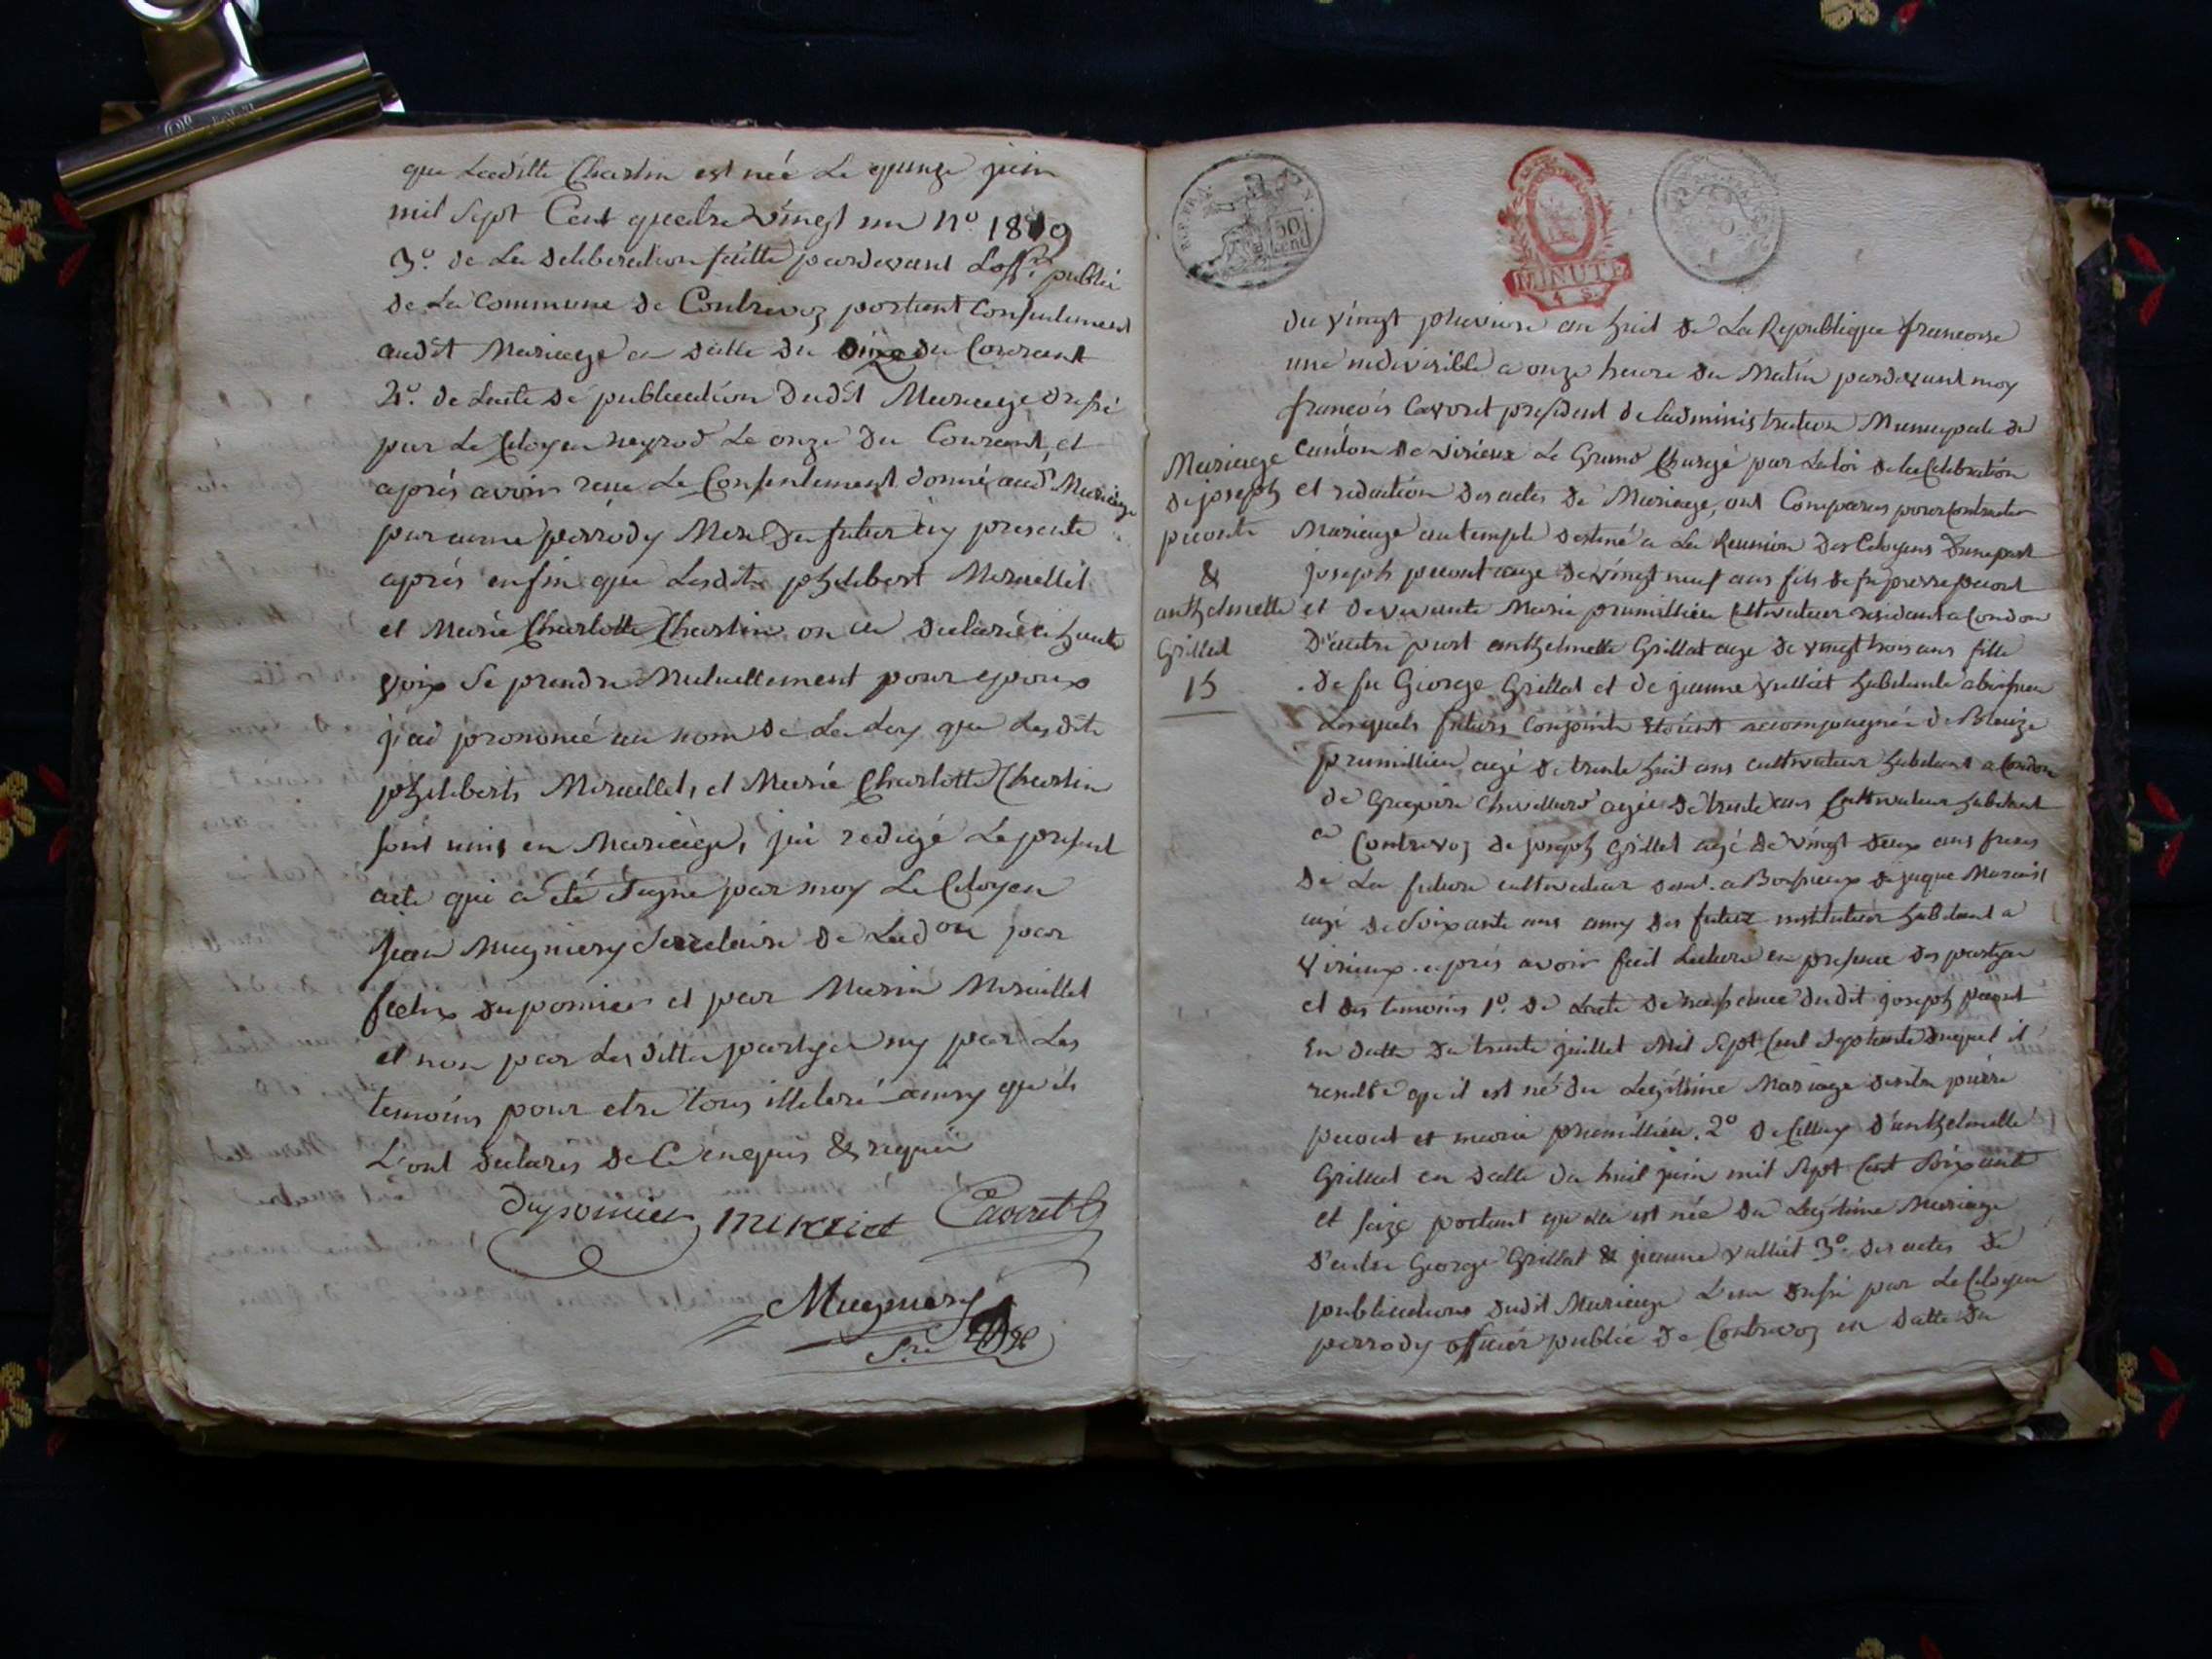 que Laditte Charlin est née Le quinze juin
mil Sept Cent quatre vingt un n.o 1819
3.o de La deliberation faitte pardevant Loff.er public
de La Commune de Contrevoz portant Consentement
audit Mariage en datte du onze du Courant
4.o de Lacte de publication dudit Mariage dressé
par Le Citoyen neyrod Le onze du Courant, et
aprés avoir recu Le Consentement donné aud.t Mariage
par anne perrody Mere du futur icy presente
aprés enfin que Lesdits philibert Miraillet
et Marie Charlotte Charlin on eu declaré a haute
voix Se prendre Mutuellement pour epoux
j'ai prononcé au nom de La Loy que Lesdits
philiberts Miraillet, et Marie Charlotte Charlin
sont unis en Mariage, j'ai redigé Le present
acte qui a été Signe par moy Le Citoyen
jean Mugniery Secretaire de Lad.on par
felix duponier et par Marin Miraillet
et non par Les dittes partyes ny par Les
temoins pour etre tous illiteré ainsy qu'ils
L'ont declarés de Ce enquis & requis
Duponier miraiet Cavoret
Mugniery
S.re
REP. FRA.
50 cent
MINUTE
4 S.
du vingt pluviose an huit de La Republique francoise
une indivisible a onze heure du Matin pardevant moy
francois Cavoret president de Ladministration Municipale du
canton de virieux Le Grand Chargé par La loi de la Celebration
et redaction des actes de Mariage, ont Comparus pour Contracter
Mariage au temple destiné a La Reunion des Citoyens Dune part
Mariage
de joseph
picont
&
anthelmette
Grillat
15
joseph picont age de vingt neuf ans fils de fu pierre picont
et de vivante Marie prumillieu Cultivateur residant a Condon
D'autre part anthelmette Grillat age de vingt trois ans fille
de fu George Grillat et de jeanne vulliet habitante a
Lesquels futurs Conjoints étoient accompagnés de Blaize
prumillieu agé de trente huit ans cultivateur habitant a Condon
de Gregoire agée de trente ans Cultivateur habitant
a Contrevoz de joseph Grillet agé de vingt deux ans freres
de La future cultivateur dem.t a de jaque
agé de Soixante ans amy des futur instituteur habitant a
Virieux. aprés avoir fait Lecture en presence des partyes
et des temoins 1.o de Lacte de naissance dudit joseph picont
En datte du trente juillet Mil Sept Cent Septante duquel il
resulte qu'il est né du Legitime Mariage dentre pierre
picont et marie prumillieu. 2.o de Celluy d'anthelmette
Grillat en datte du huit juin mil Sept Cent Soixante
et Seize portant qu'ela est née du Legitime Mariage
d'entre George Grillat & jeanne vulliét 3.o des actes de
publications dudit Mariage L'un dressé par Le Citoyen
perrody officiér public de Contrevoz en datte du